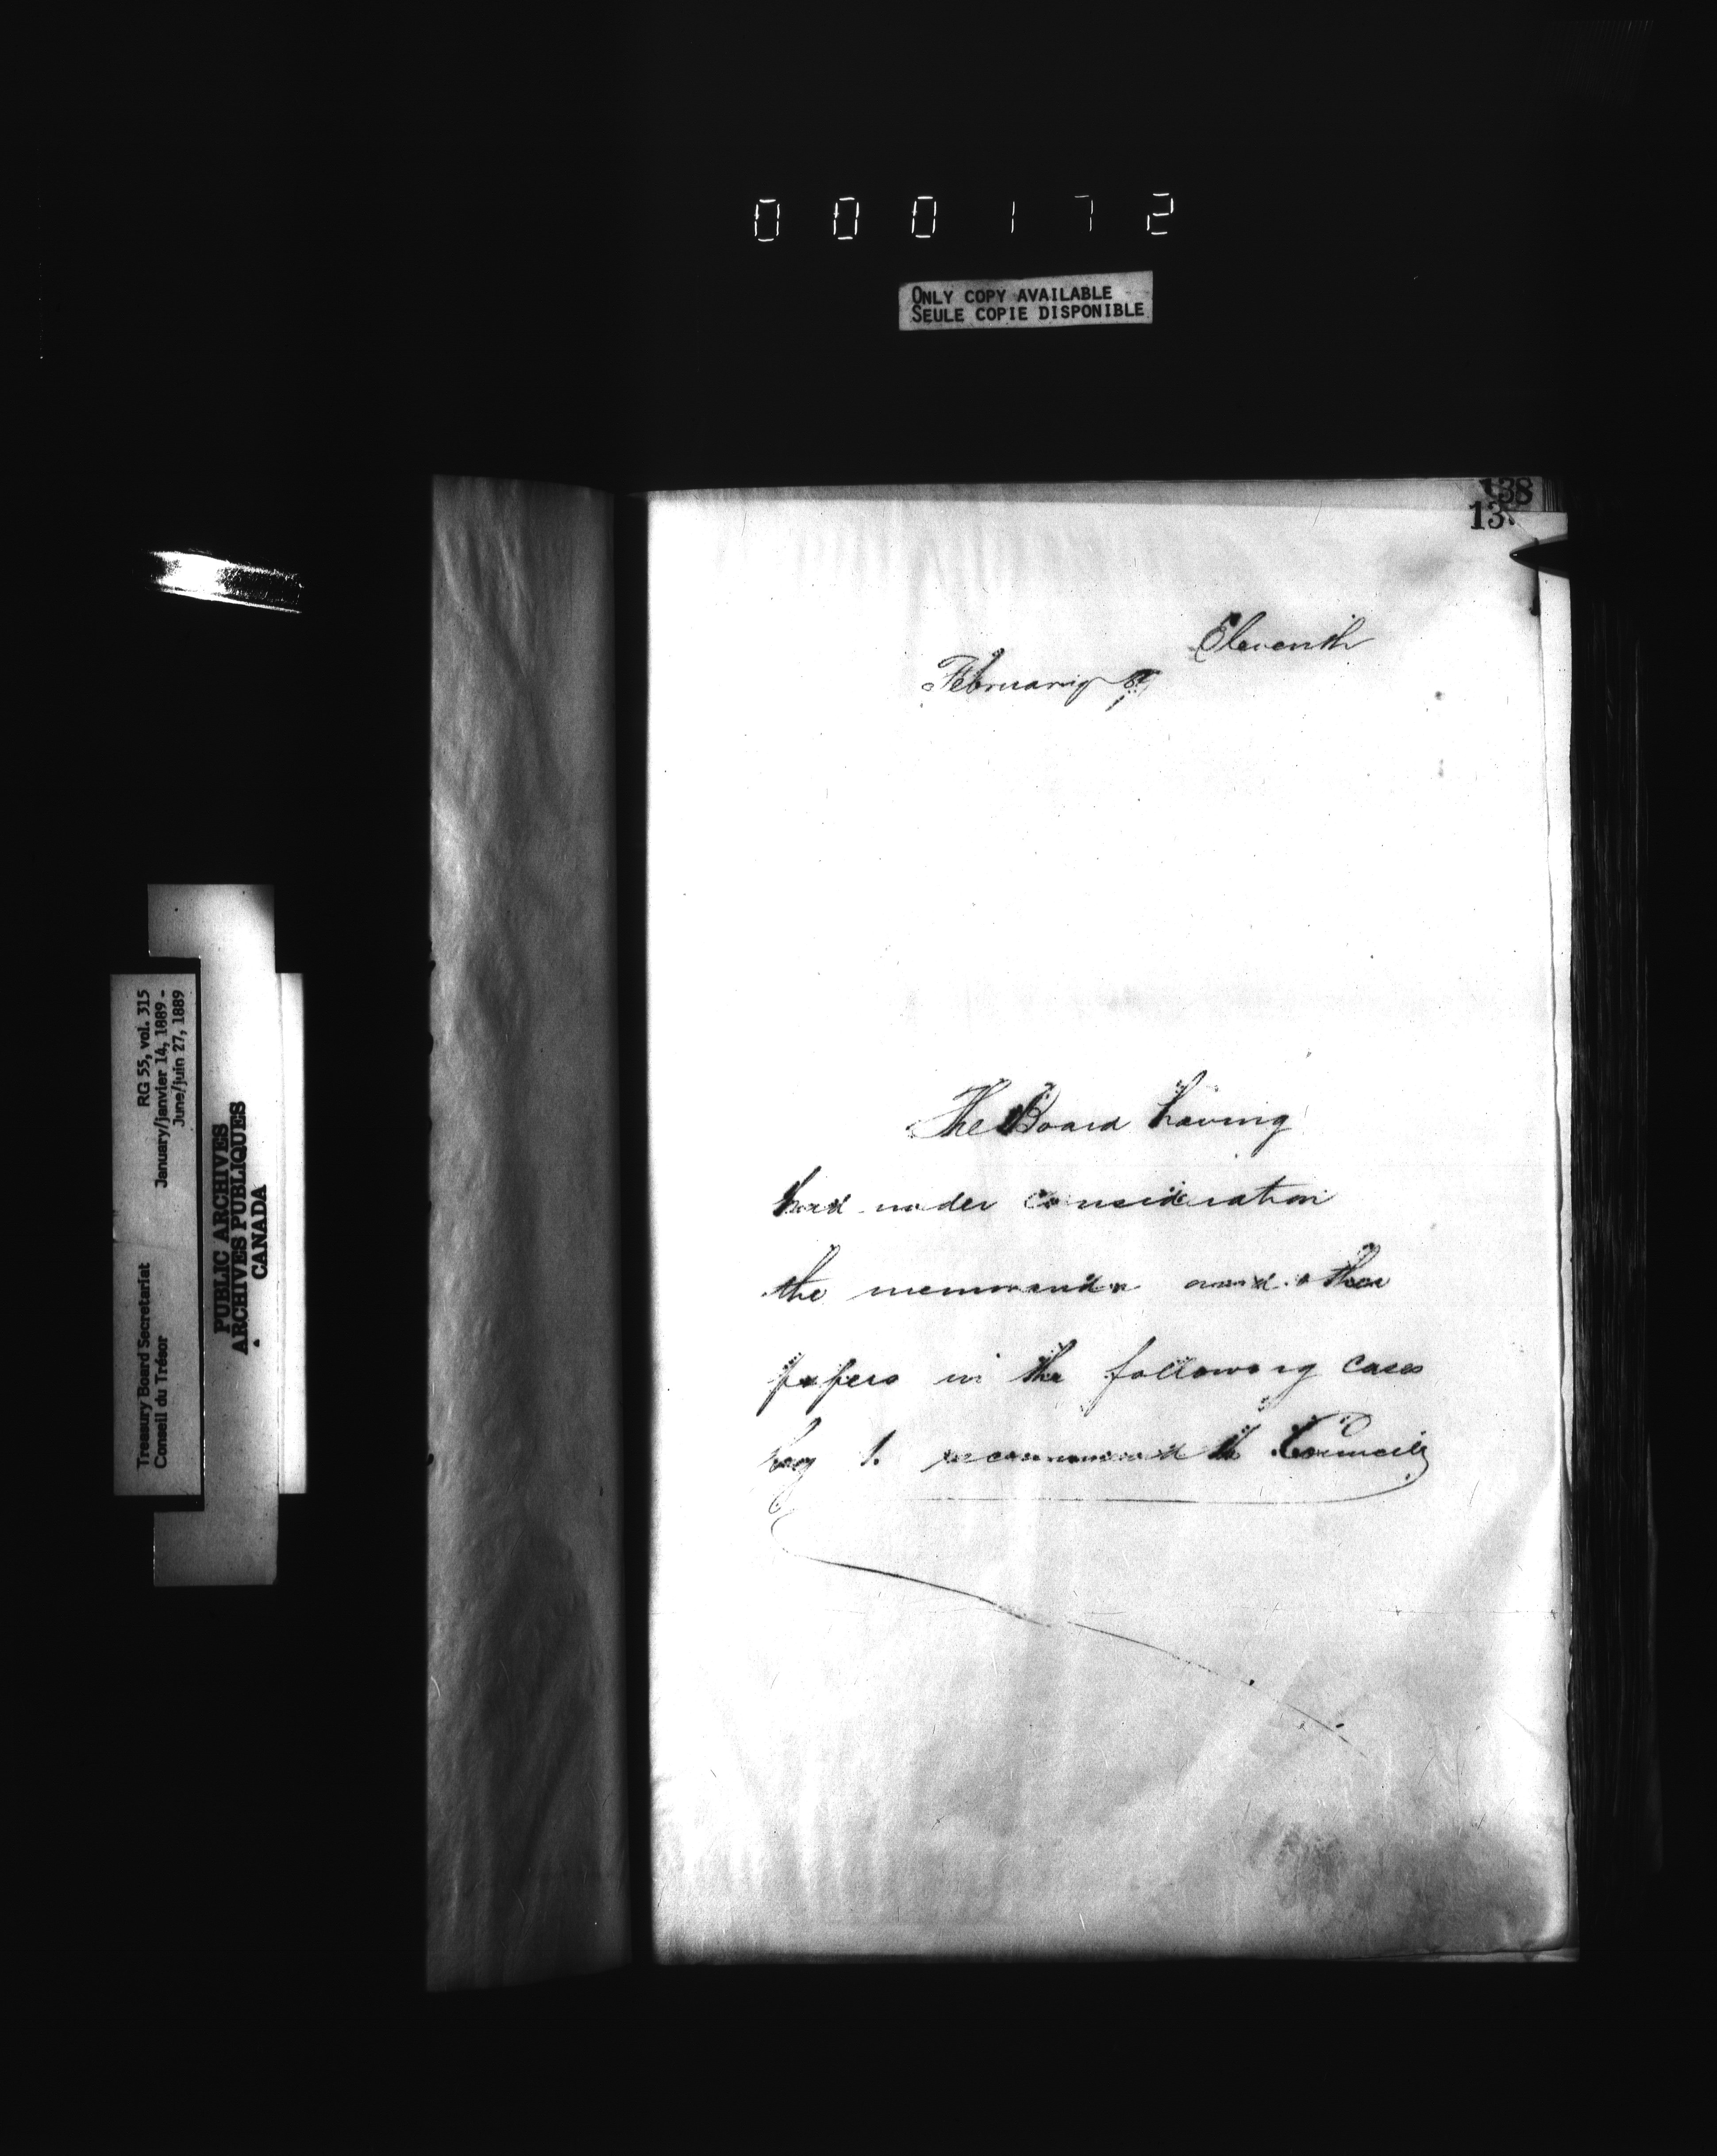 000172
ONLY COPY AVAILABLE
SEULE COPIE DISPONIBLE
138
13
Eleventh
February
The Board having
had under consideration
the memoranda and other
papers in the following cases
beg to recommend to Council
Treasury Board Secretariat RG 55, vol. 315
Conseil du Trésor January/janvier 14, 1889 -
June/juin 27, 1889
PUBLIC ARCHIVES
ARCHIVES PUBLIQUES
CANADA